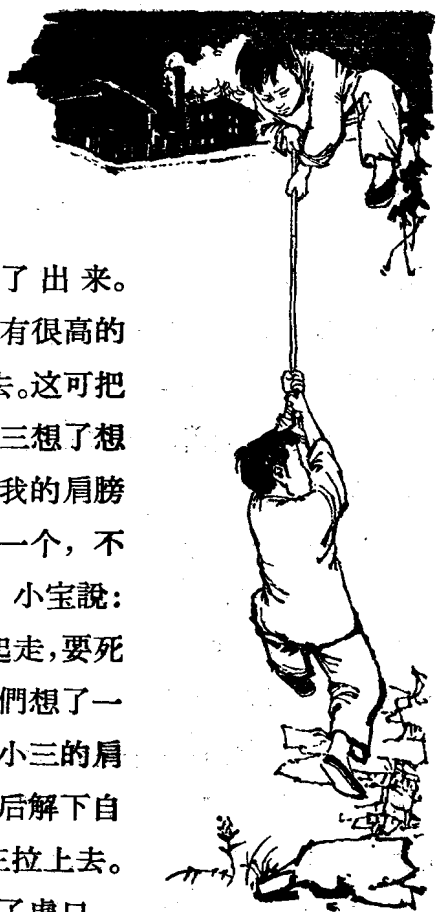 了出来。
有很高的
去。这可把
三想了想
我的肩膀
一个，不
小宝說：
起走，要死
們想了一
小三的肩
后解下自
三拉上去。
了虎口